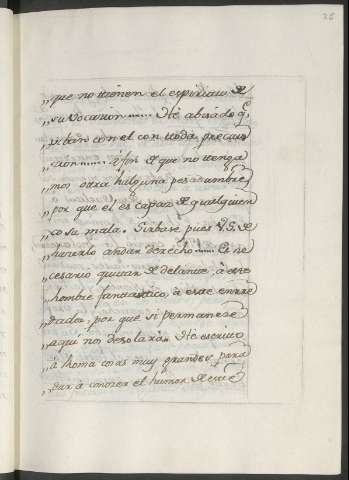 28
„que no ttienen el espiritu de
„su vocacion..... He abisado q.e
„urban con el con ttoda precau
„cion...... á fin de que no ttenga
„mos ottra halguna pesadumbre,
„por que el es capaz de qualquier
„co su mala. Sirbase pues V.S. de
„hacerlo andar derecho..... Es ne
„cesario quittar de delante, á este
„hombre fanttastico, á este enrre
„dador, por que si permaneze
„aqui nos desolará. He escrito
„á Roma cosas muy grandes para
„dar á conozer el humor de este